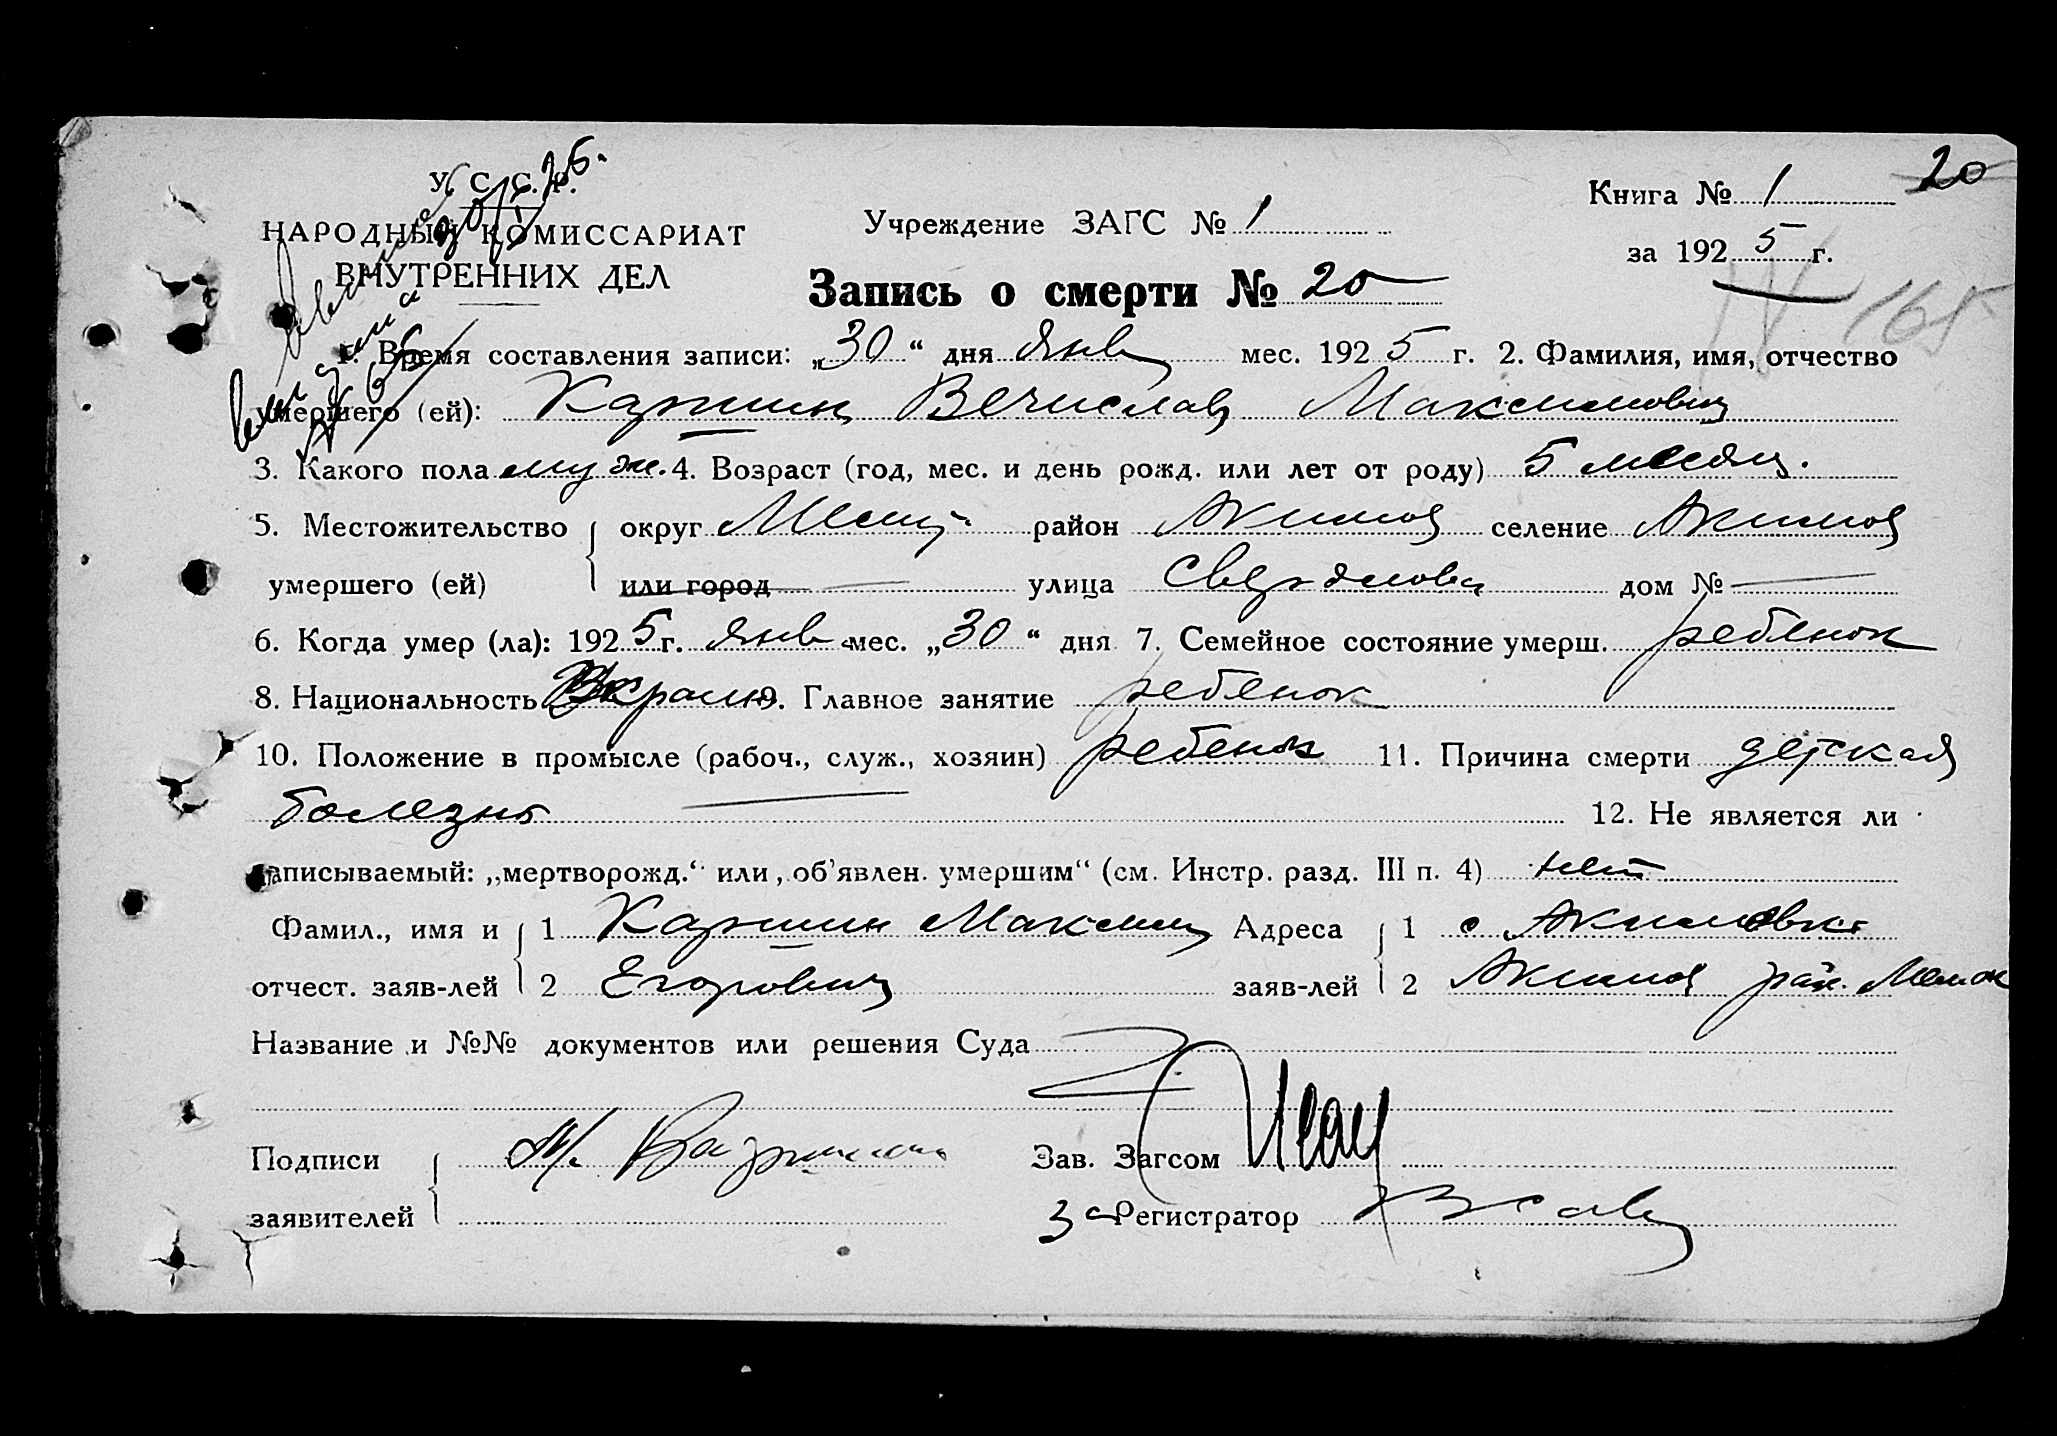 У. С. С. Р.
НАРОДНЫЙ КОМИССАРИАТ
ВНУТРЕННИХ ДЕЛ
Учреждение ЗАГС № 1
Книга № 1
20
за 1925 г.
Запись о смерти № 20
165
1. Время составления записи: „30“ дня Янв мес. 1925 г. 2. Фамилия, имя, отчество
умершего (ей): Каршин Вечислав Максимович
3. Какого пола муж. 4. Возраст (год, мес. и день рожд. или лет от роду) 5 месяц.
5. Местожительство округ Мелит. район Акимов селение Акимов
умершего (ей) или город улица Свердлова дом № —
6. Когда умер (ла): 1925 г. Янв мес. „30“ дня 7. Семейное состояние умерш. ребенок
8. Национальность Украин 9. Главное занятие ребенок
10. Положение в промысле (рабоч., служ., хозяин) ребенок 11. Причина смерти детская
болезнь 12. Не является ли
записываемый: „мертворожд.“ или „об’явлен. умершим“ (см. Инстр. разд. III п. 4) нет
Фамил., имя и 1 Каршин Максим Адреса 1 с Акимовка
отчест. заяв-лей 2 Егорович заяв-лей 2 Акимов рай.
Название и №№ документов или решения Суда
Подписи М. Каршин Зав. Загсом
заявителей За Регистратор